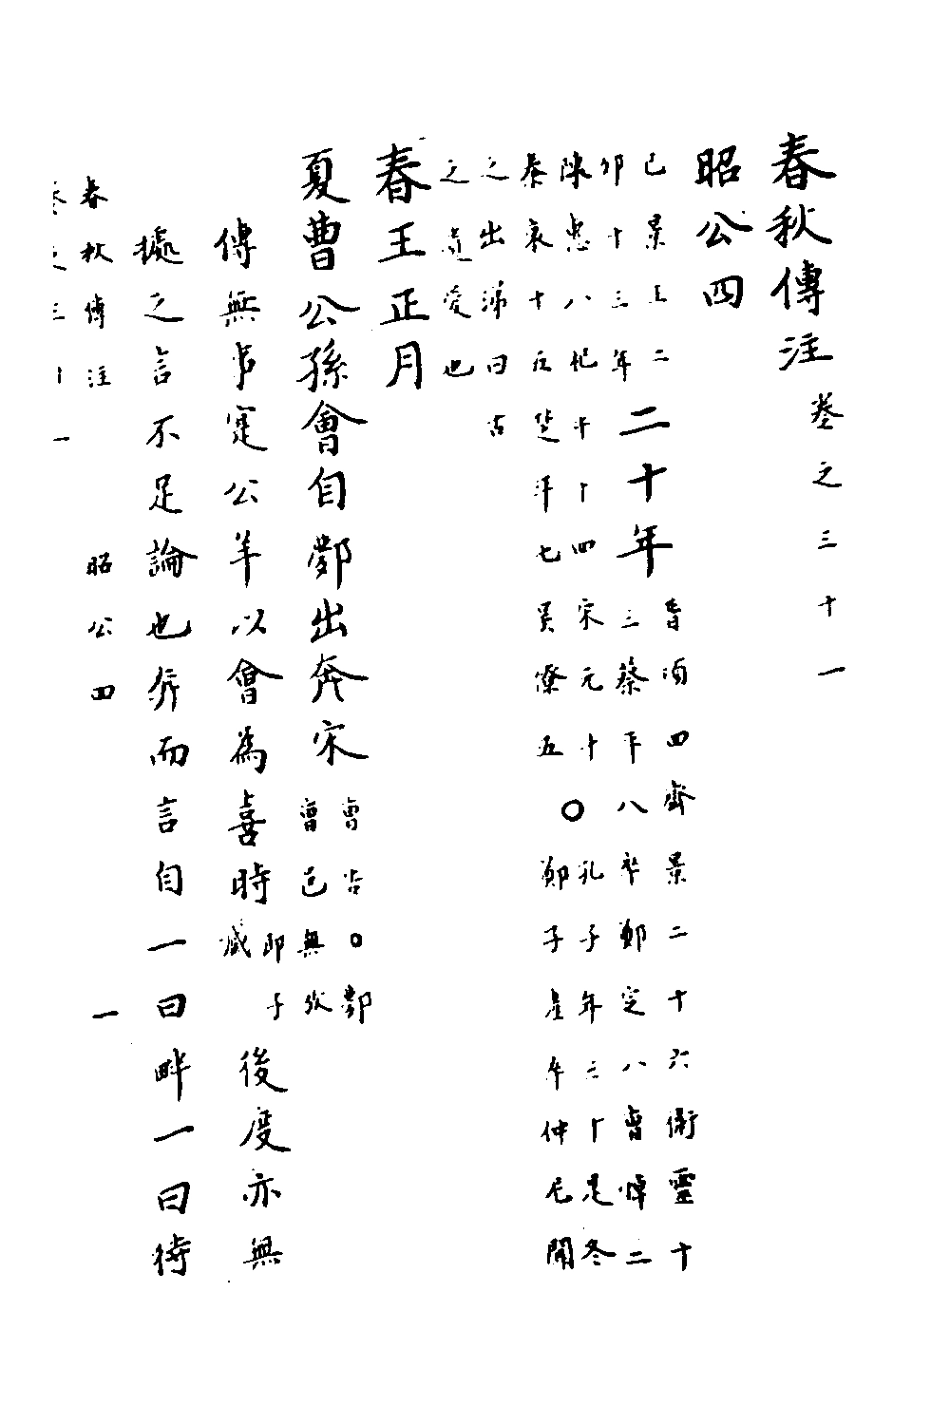 春秋傳注卷之三十一
昭公四
己景王二
卯十三年
二十年
晉頃四齊景二十六衛靈十
三蔡平八卒鄭定八曹悼二
陳惠八杞平十四宋元十〇孔子年三十是冬
秦哀十五楚平七吳僚五 鄭子産卒仲尼聞
之出涕曰古
之遺愛也
春王正月
夏曹公孫會自鄸出奔宋
曹占〇鄸
曹邑無攷
傳無事寔公羊以會為喜時即子臧後度亦無
據之言不足論也奔而言自一曰畔一曰待
春秋傳注 昭公四 一